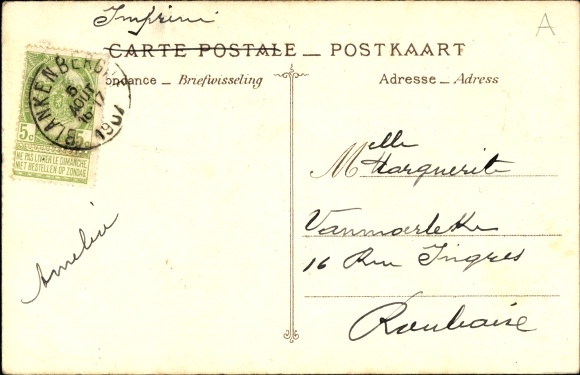 Imprimé
A
CARTE POSTALE — POSTKAART
ondance — Briefwisseling
Adresse — Adress
BLANKENBERGHE
6
AOUT
16-17
1907
5c 5c
NE PAS LIVRER LE DIMANCHE
NIET BESTELLEN OP ZONDAG
Amélie
Melle Marguerite
Vanmarleke
16 Rue Ingres
Roubaix